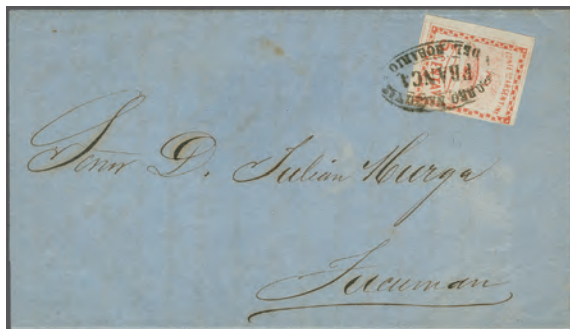 DEL ROSARIO
FRANCA
Señor D. Julian Murga
Tucuman